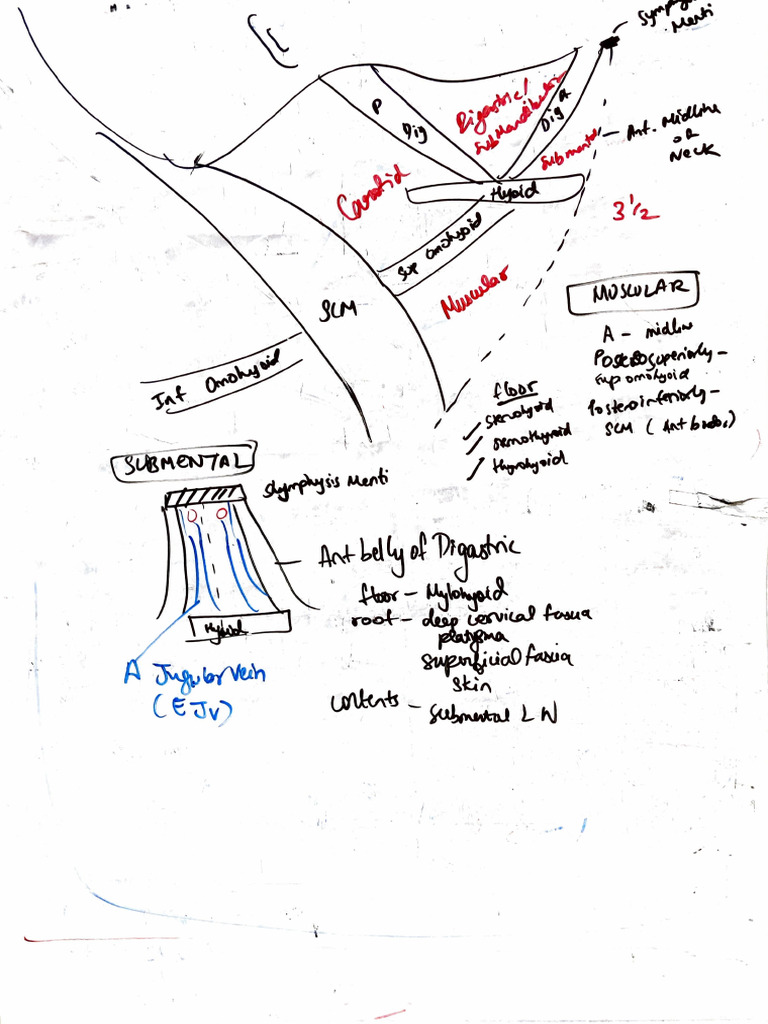 Symphysis
Menti
P
Dig
Digastric/
Submandibular
A
Dig
Submental
Ant. Midline
OR
Neck
Carotid
Hyoid
3 1/2
Sup Omohyoid
Muscular
SCM
Inf Omohyoid
MUSCULAR
A - midline
Posterosuperiorly -
sup omohyoid
Posteroinferiorly -
SCM (Ant border)
floor
sternohyoid
sternothyroid
thyrohyoid
SUBMENTAL
Symphysis Menti
Ant belly of Digastric
floor - Mylohyoid
roof - deep cervical fascia
platysma
superficial fascia
skin
contents - submental LN
Hyoid
A Jugular Vein
(EJV)